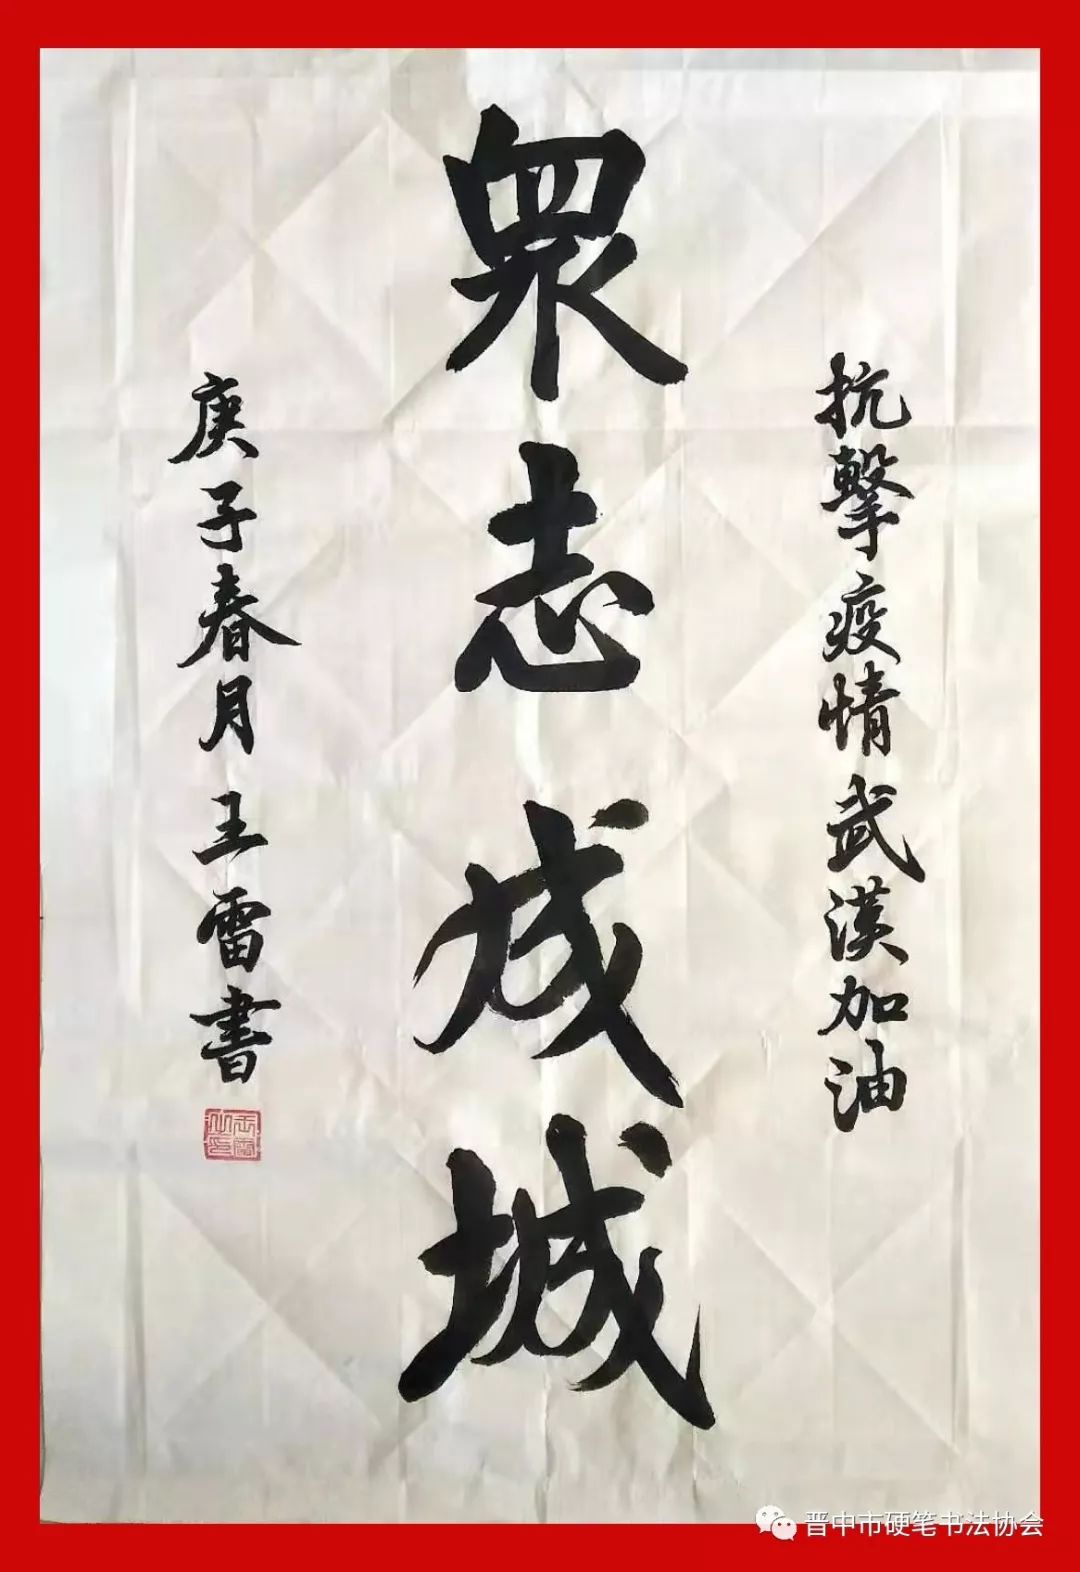 抗擊疫情武漢加油
眾志成城
庚子春月王雷書
王雷之印
晋中市硬笔书法协会